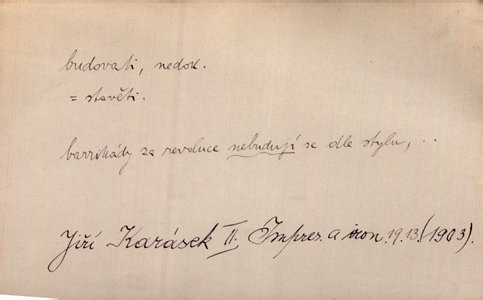 budovati, nedok.
= stavěti.
barrikády za revoluce nebudují se dle stylu, ..
Jiří Karásek II. Impres. a iron. 19.13. (1903).